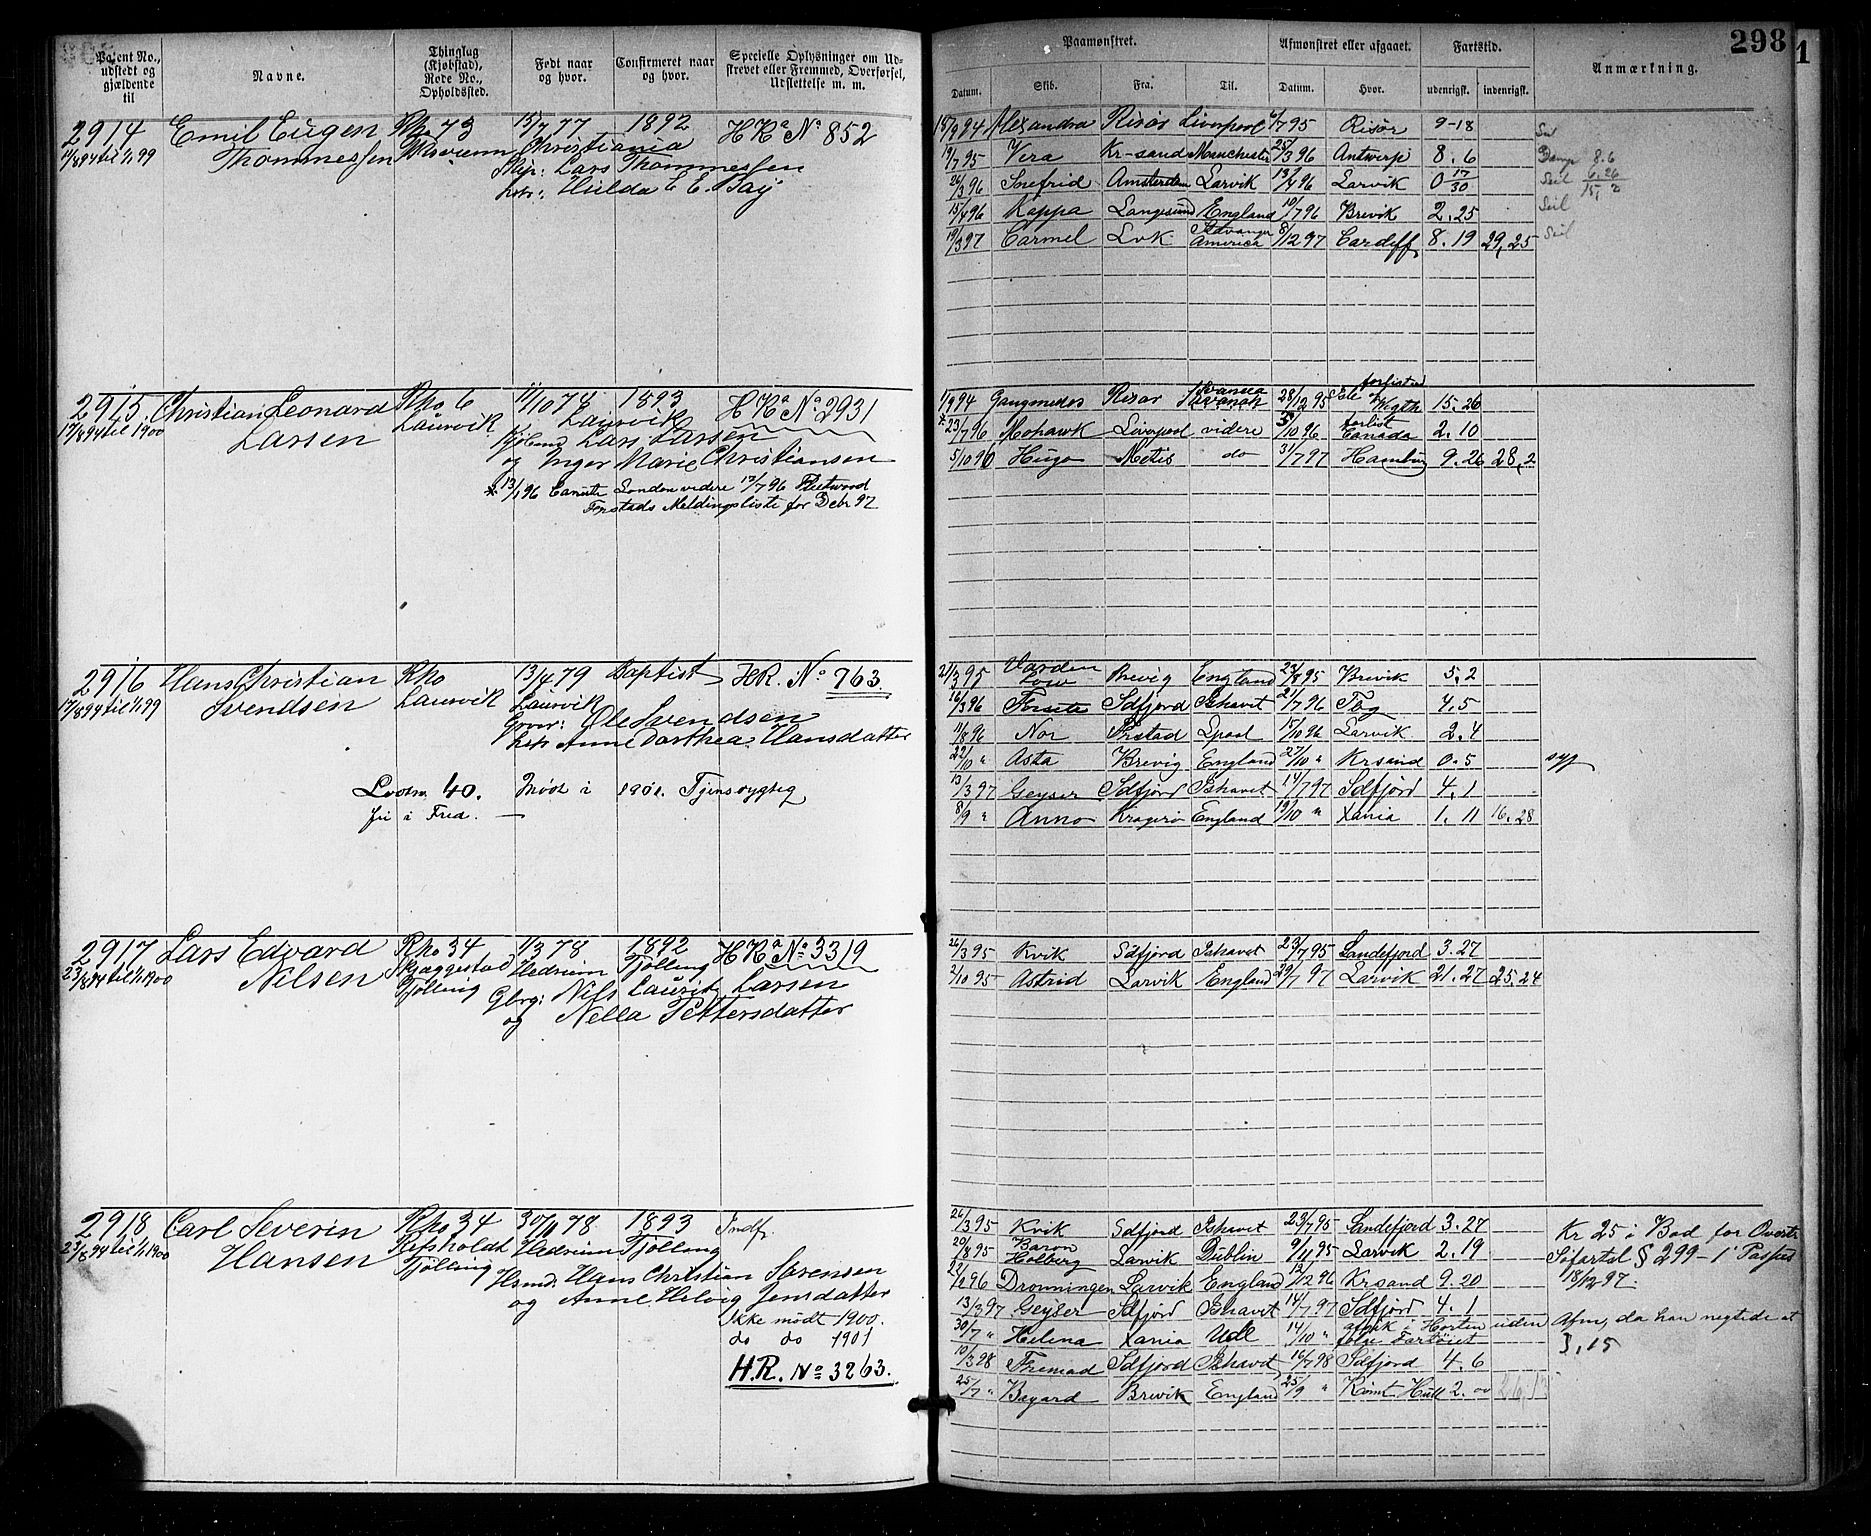 298
1
Patent No., udstedt og gjældende til
Navne.
Thinglag (Kjøbstad), Rode No., Opholdssted.
Født naar og hvor.
Confirmeret naar og hvor.
Specielle Oplysninger om Udstrevet eller Fremmed, Overførsel, Udslettelse m. m.
Paamønstret.
Afmønstret eller afgaaet.
Fartstid.
Anmærkning.
Datum.
Skib.
Fra.
Til.
Datum.
Hvor.
udenrigsk.
indenrigsk.
2914 Emil Eugen Rho 73 15/7 77 1892 HRa No 852
14/8 94 til 1/1 99 Thommessen Christiania
Lars Thommessen
Hulda C E. Bay
15/9 94 Alexandra Risør Liverpool 6/7 95 Risør 9-18
19/7 95 Vera Kr-sand Manchester 25/3 96 Antwerp 8.6 8.6
26/3 96 Snefrid Amsterdam Larvik 13/4 96 Larvik 0 17/30 Seil 6.26
15/4 96 Kappa Langesund England 10/7 96 Brevik 2.25 Seil
19/3 97 Carmel Lvk America 8/12 97 Cardiff 8.19 29,25 Seil
2915 Christian Leonard Rho 6 11/10 78 1893 HRa No 2931
17/8 94 til 1900 Larsen Laurvik Laurvik
Lars Larsen
og Inger Marie Christiansen
* 13/1 96 Canute London videre 17/7 96 Fleetwood
Frstads Meldingsliste for Debr 97
1/9 94 Ganymedes Risør 28/12 95 forlist 15.26
* 23/7 96 Mohawk Liverpool videre 5/10 96 forlist Canada 2.10
5/10 96 Hugo Metis do 31/7 97 Hamburg 9.26 28,2
2916 Hans Christian Rho 13/4 79 Baptist HR. No 763.
17/8 94 til 1/1 99 Svendsen Laurvik Laurvik
Ole Svendsen
Anne Dorthea Hansdatter
Lvostn 40. Mødt i 1901. Tjensdygtig
fri i Fred. —
21/3 95 Varden Brevig England 22/8 95 Brevik 5.2
16/3 96 Forsete Sdfjord Ishavet 21/7 96 Tbg 4.5
11/8 96 Nor Frstad Lpool 15/10 96 Larvik 2.4
22/10 " Asta Brevig England 27/10 " Krsand 0.5 syg
13/3 97 Geyser Sdfjord Ishavet 14/7 97 Sdfjord 4.1
8/9 " Anno Kragerø England 19/10 " Xania 1.11 16.28
2917 Lars Edvard Rho 34 1/3 78 1892 HRa No 3319
23/8 94 til 1/1 1900 Nilsen Skjaggestad Hedrum Tjølling
Tjølling Gbrg: Nils Laurits Larsen
og Nella Pettersdatter
26/3 95 Kvik Sdfjord Ishavet 23/7 95 Sandefjord 3.27
2/10 95 Astrid Larvik England 29/7 97 Larvik 21.27 25.24
2918 Carl Severin Rho 34 30/11 78 1893 Indf.
23/8 94 til 1/1 1900 Hansen Refsholdt Hedrum Tjølling
Tjølling Hsmd: Hans Christian Sørensen
og Anne Helvig Jensdatter
Ikke mødt 1900.
do do 1901
H.R. No 3263.
26/3 95 Kvik Sdfjord Ishavet 23/7 95 Sandefjord 3.27
20/8 95 Baron Holberg Larvik Dublin 9/11 95 Larvik 2.19
22/2 96 Dronningen Larvik England 12/12 96 Krsand 9.20
13/3 97 Geyser Sdfjord Ishavet 14/7 97 Sdfjord 4.1
30/7 " Helena Xania Udl 14/10 " i Horten uden Afm, da han negtede at
følge Fartøiet 3,15
10/3 98 Fremad Sdfjord Ishavet 16/7 98 Sdfjord 4.6
25/7 " Bayard Brevik England 25/9 " Rømt Hull 2.
Kr 25 i Bod for Overtr
Søfartsl § 299 – 1 Paspus
18/12 97.